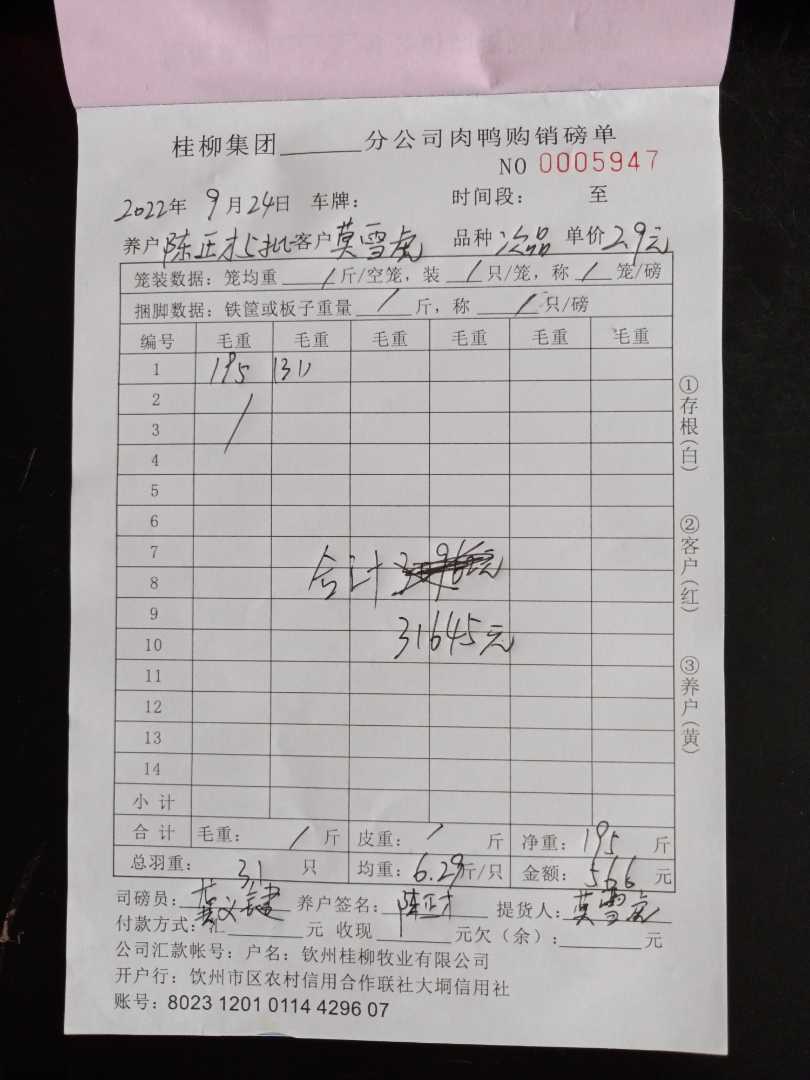 桂柳集团______分公司肉鸭购销磅单
NO 0005947
2022年 9月24日 车牌: 时间段: 至
养户 陈正才5批 客户 莫雪虎 品种 次品 单价 2.9元
笼装数据: 笼均重 / 斤/空笼, 装 / 只/笼, 称 / 笼/磅
捆脚数据: 铁筐或板子重量 / 斤, 称 / 只/磅
编号 毛重 毛重 毛重 毛重 毛重 毛重
1 195 (31)
2
3 /
4
5
6
7
8 合计
9
10 31645元
11
12
13
14
小计
合计 毛重: / 斤 皮重: / 斤 净重: 195 斤
总羽重: 31 只 均重: 6.29斤/只 金额: 566 元
司磅员: 养户签名: 陈正才 提货人: 莫雪虎
付款方式: 汇______元 收现______元欠(余):______元
公司汇款帐号: 户名: 钦州桂柳牧业有限公司
开户行: 钦州市区农村信用合作联社大垌信用社
账号: 8023 1201 0114 4296 07
①存根(白)
②客户(红)
③养户(黄)